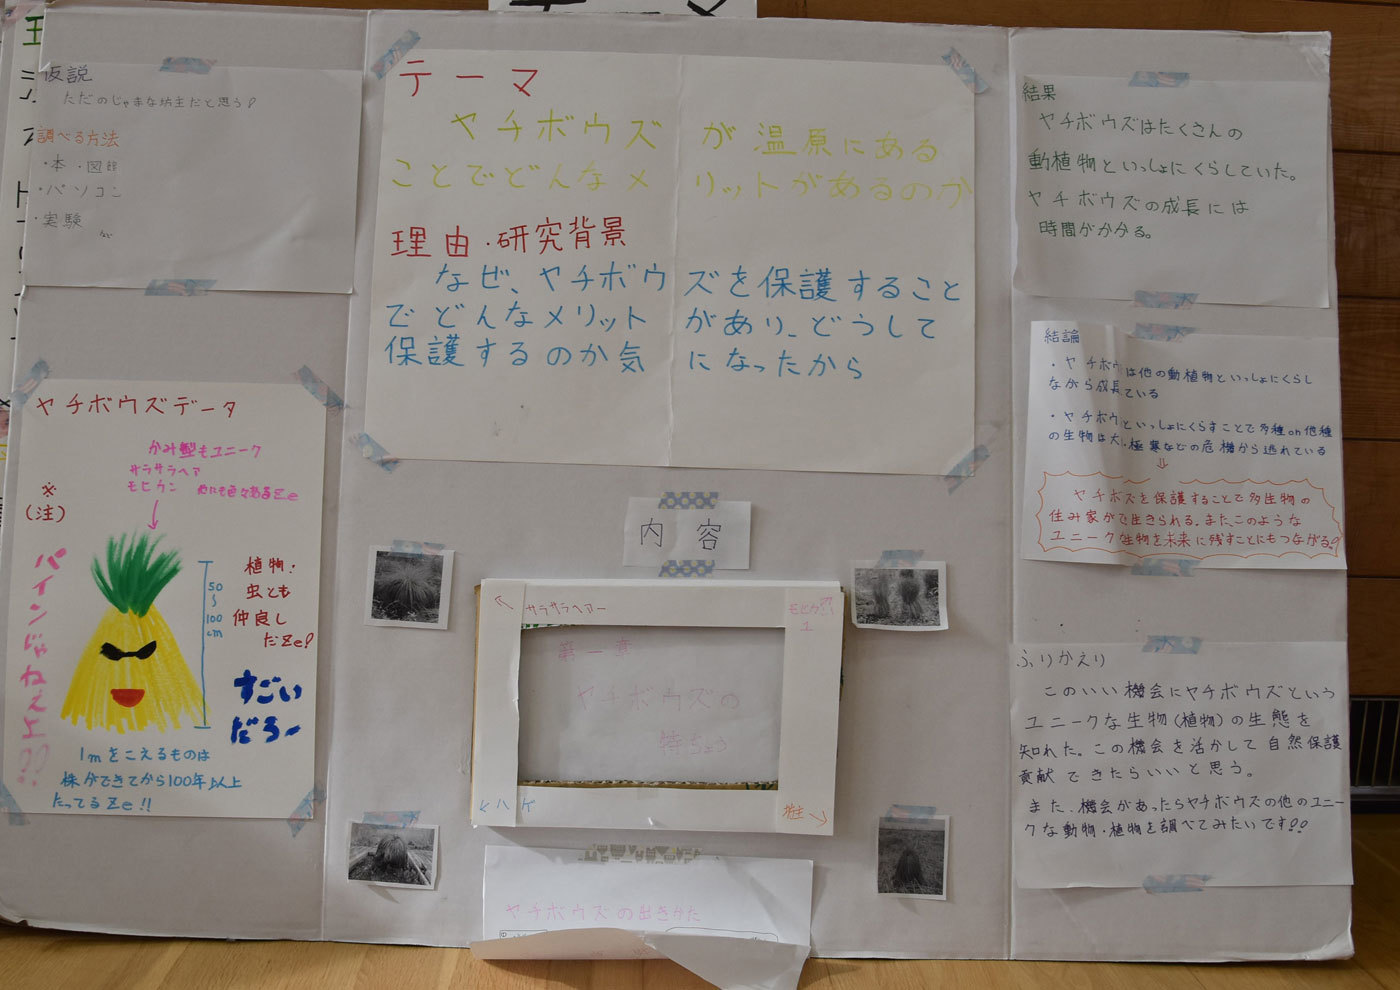 仮説
ただのじゃまな坊主だと思う!
調べる方法
・本・図鑑
・パソコン
・実験 など
ヤチボウズデータ
かみ型もユニーク
サラサラヘア
モヒカン 他にも色々あるZe
※
(注)
パインじゃねぇよ!!
50
~
100
cm
植物:
虫とも
仲良し
だZe!
すごい
だろー
1mをこえるものは
株ができてから100年以上
たってるZe!!
テーマ
ヤチボウズが温原にある
ことでどんなメリットがあるのか
理由・研究背景
なぜ、ヤチボウズを保護すること
でどんなメリットがあり、どうして
保護するのか気になったから
内容
サラサラヘアー
第一章
ヤチボウズの
特ちょう
ハゲ
ヤチボウズの出きかた
結果
ヤチボウズはたくさんの
動植物といっしょにくらしていた。
ヤチボウズの成長には
時間がかかる。
結論
・ヤチボウは他の動植物といっしょにくらし
ながら成長ている
・ヤチボウといっしょにくらすことで多種or他種
の生物は大・極寒などの危機から逃れている
⇩
ヤチボズを保護することで多生物の
住み家がで生きられる。また、このような
ユニーク生物を未来に残すことにもつながる。
ふりかえり
このいい機会にヤチボウズという
ユニークな生物(植物)の生態を
知れた。この機会を活かして自然保護
貢献できたらいいと思う。
また、機会があったらヤチボウズの他のユニー
クな動物・植物を調べてみたいです!!